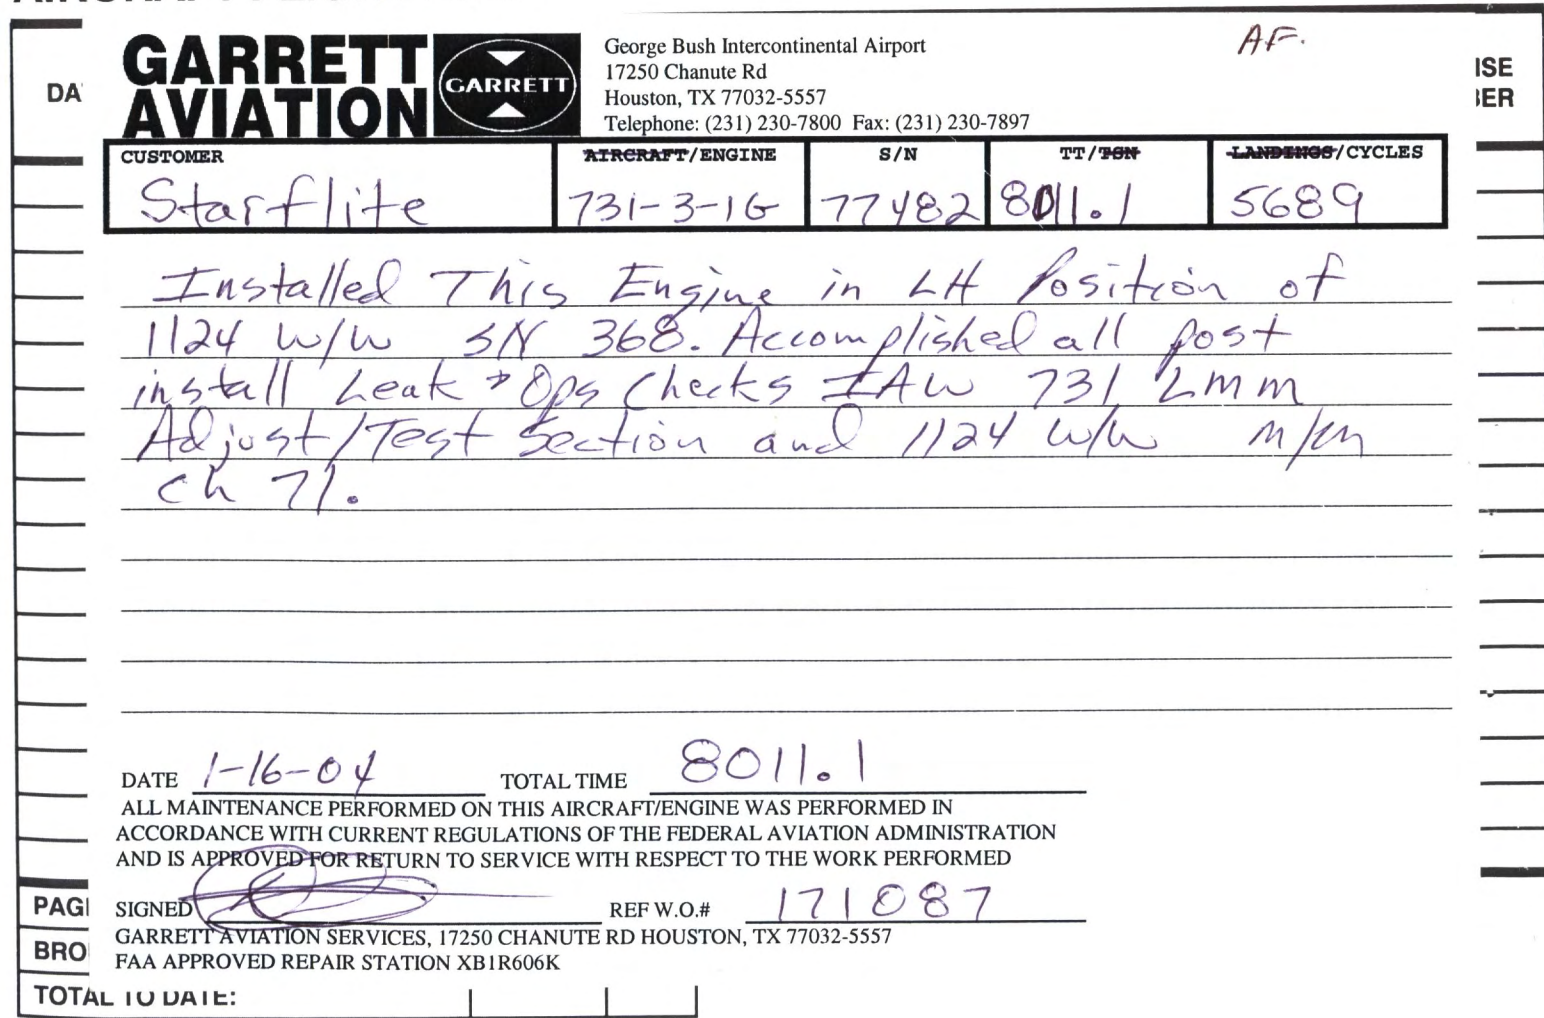 GARRETT
AVIATION
GARRETT
George Bush Intercontinental Airport
17250 Chanute Rd
Houston, TX 77032-5557
Telephone: (231) 230-7800 Fax: (231) 230-7897
AF.
DA
ISE
BER
CUSTOMER AIRCRAFT/ENGINE S/N TT/TSN LANDINGS/CYCLES
Starflite 731-3-1G 77482 8011.1 5689
Installed This Engine in LH Position of
1124 W/W S/N 368. Accomplished all post
install Leak & Ops Checks IAW 731 LMM
Adjust/Test Section and 1124 W/W M/M
Ch 71.
DATE 1-16-04 TOTAL TIME 8011.1
ALL MAINTENANCE PERFORMED ON THIS AIRCRAFT/ENGINE WAS PERFORMED IN
ACCORDANCE WITH CURRENT REGULATIONS OF THE FEDERAL AVIATION ADMINISTRATION
AND IS APPROVED FOR RETURN TO SERVICE WITH RESPECT TO THE WORK PERFORMED
SIGNED REF W.O.# 171087
GARRETT AVIATION SERVICES, 17250 CHANUTE RD HOUSTON, TX 77032-5557
FAA APPROVED REPAIR STATION XB1R606K
PAG
BRO
TOTAL TO DATE: